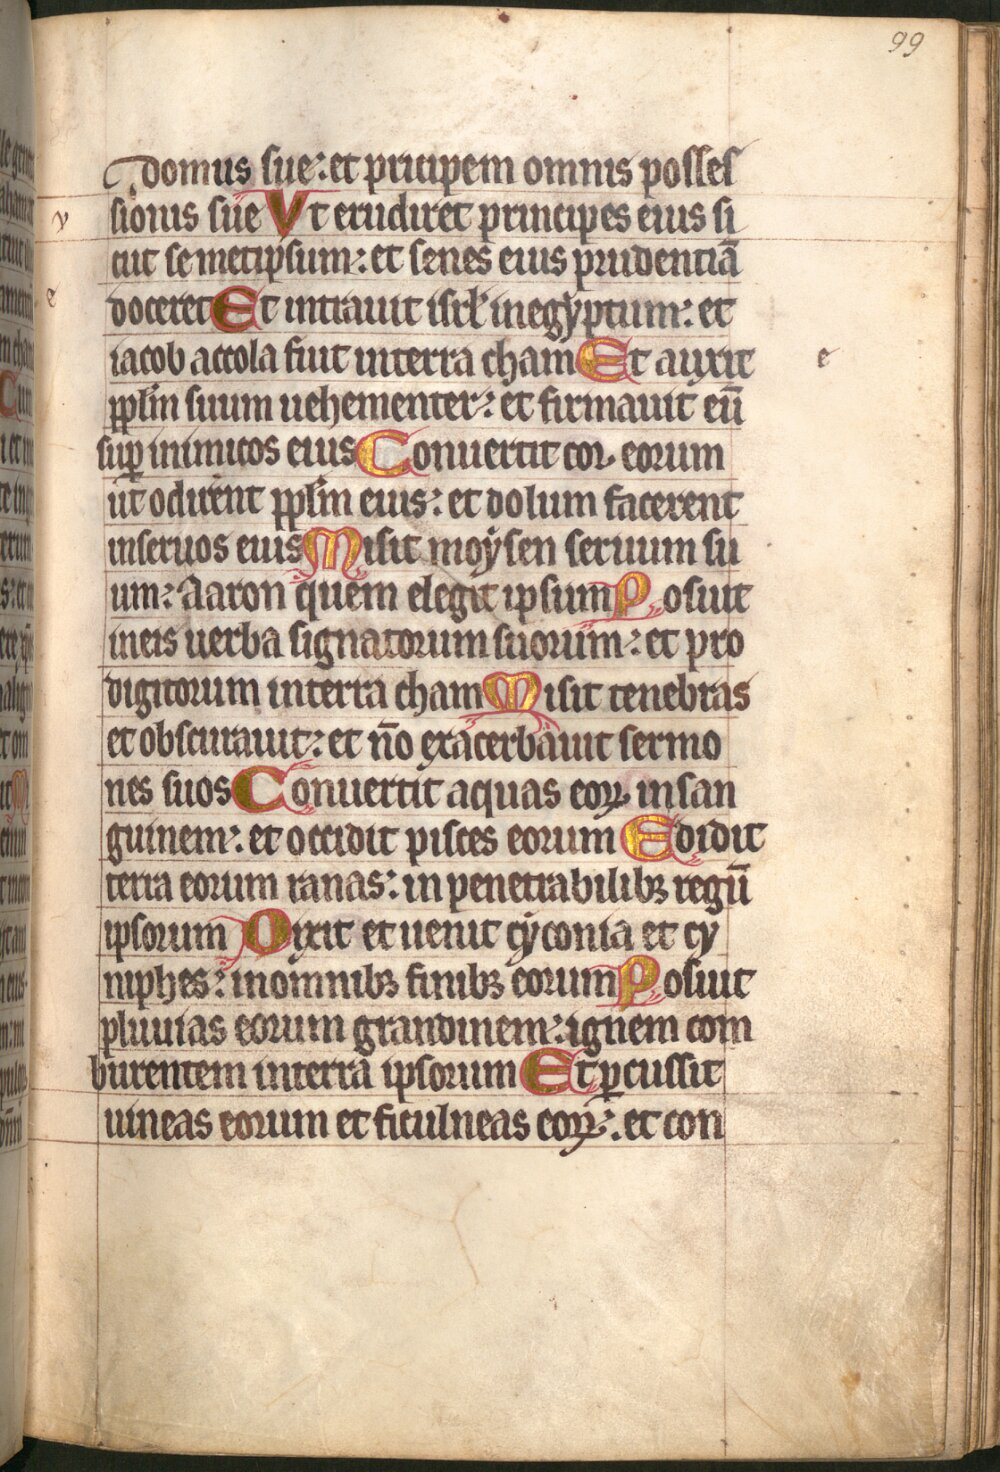 99
domus sue: et pricipem omnis posses
v sionis sue Vt erudiret principes eius si
cut semetipsum: et senes eius prudentiā
e doceret Et intrauit isrl̄ inegẏptum: et
iacob accola fuit interra cham Et auxit e
pplm̄ suum uehementer: et firmauit eū
suꝑ inimicos eius Conuertit cor eorum
ut odirent pplm̄ eius: et dolum facerent
inseruos eius Misit moẏsen seruum su
um: Aaron quem elegit ipsum Posuit
ineis uerba signatorum suorum: et pro
digitorum interra cham Misit tenebras
et obscurauit: et nō exacerbauit sermo
nes suos Conuertit aquas eoꝝ insan
guinem: et occidit pisces eorum Edidit
terra eorum ranas: in penetrabilibꝫ regū
ipsorum Dixit et uenit cẏconia et cẏ
niphes: inomnibꝫ finibꝫ eorum Posuit
pluuias eorum grandinem: ignem com
burentem interra ipsorum Et ꝑcussit
uineas eorum et ficulneas eoꝝ: et con